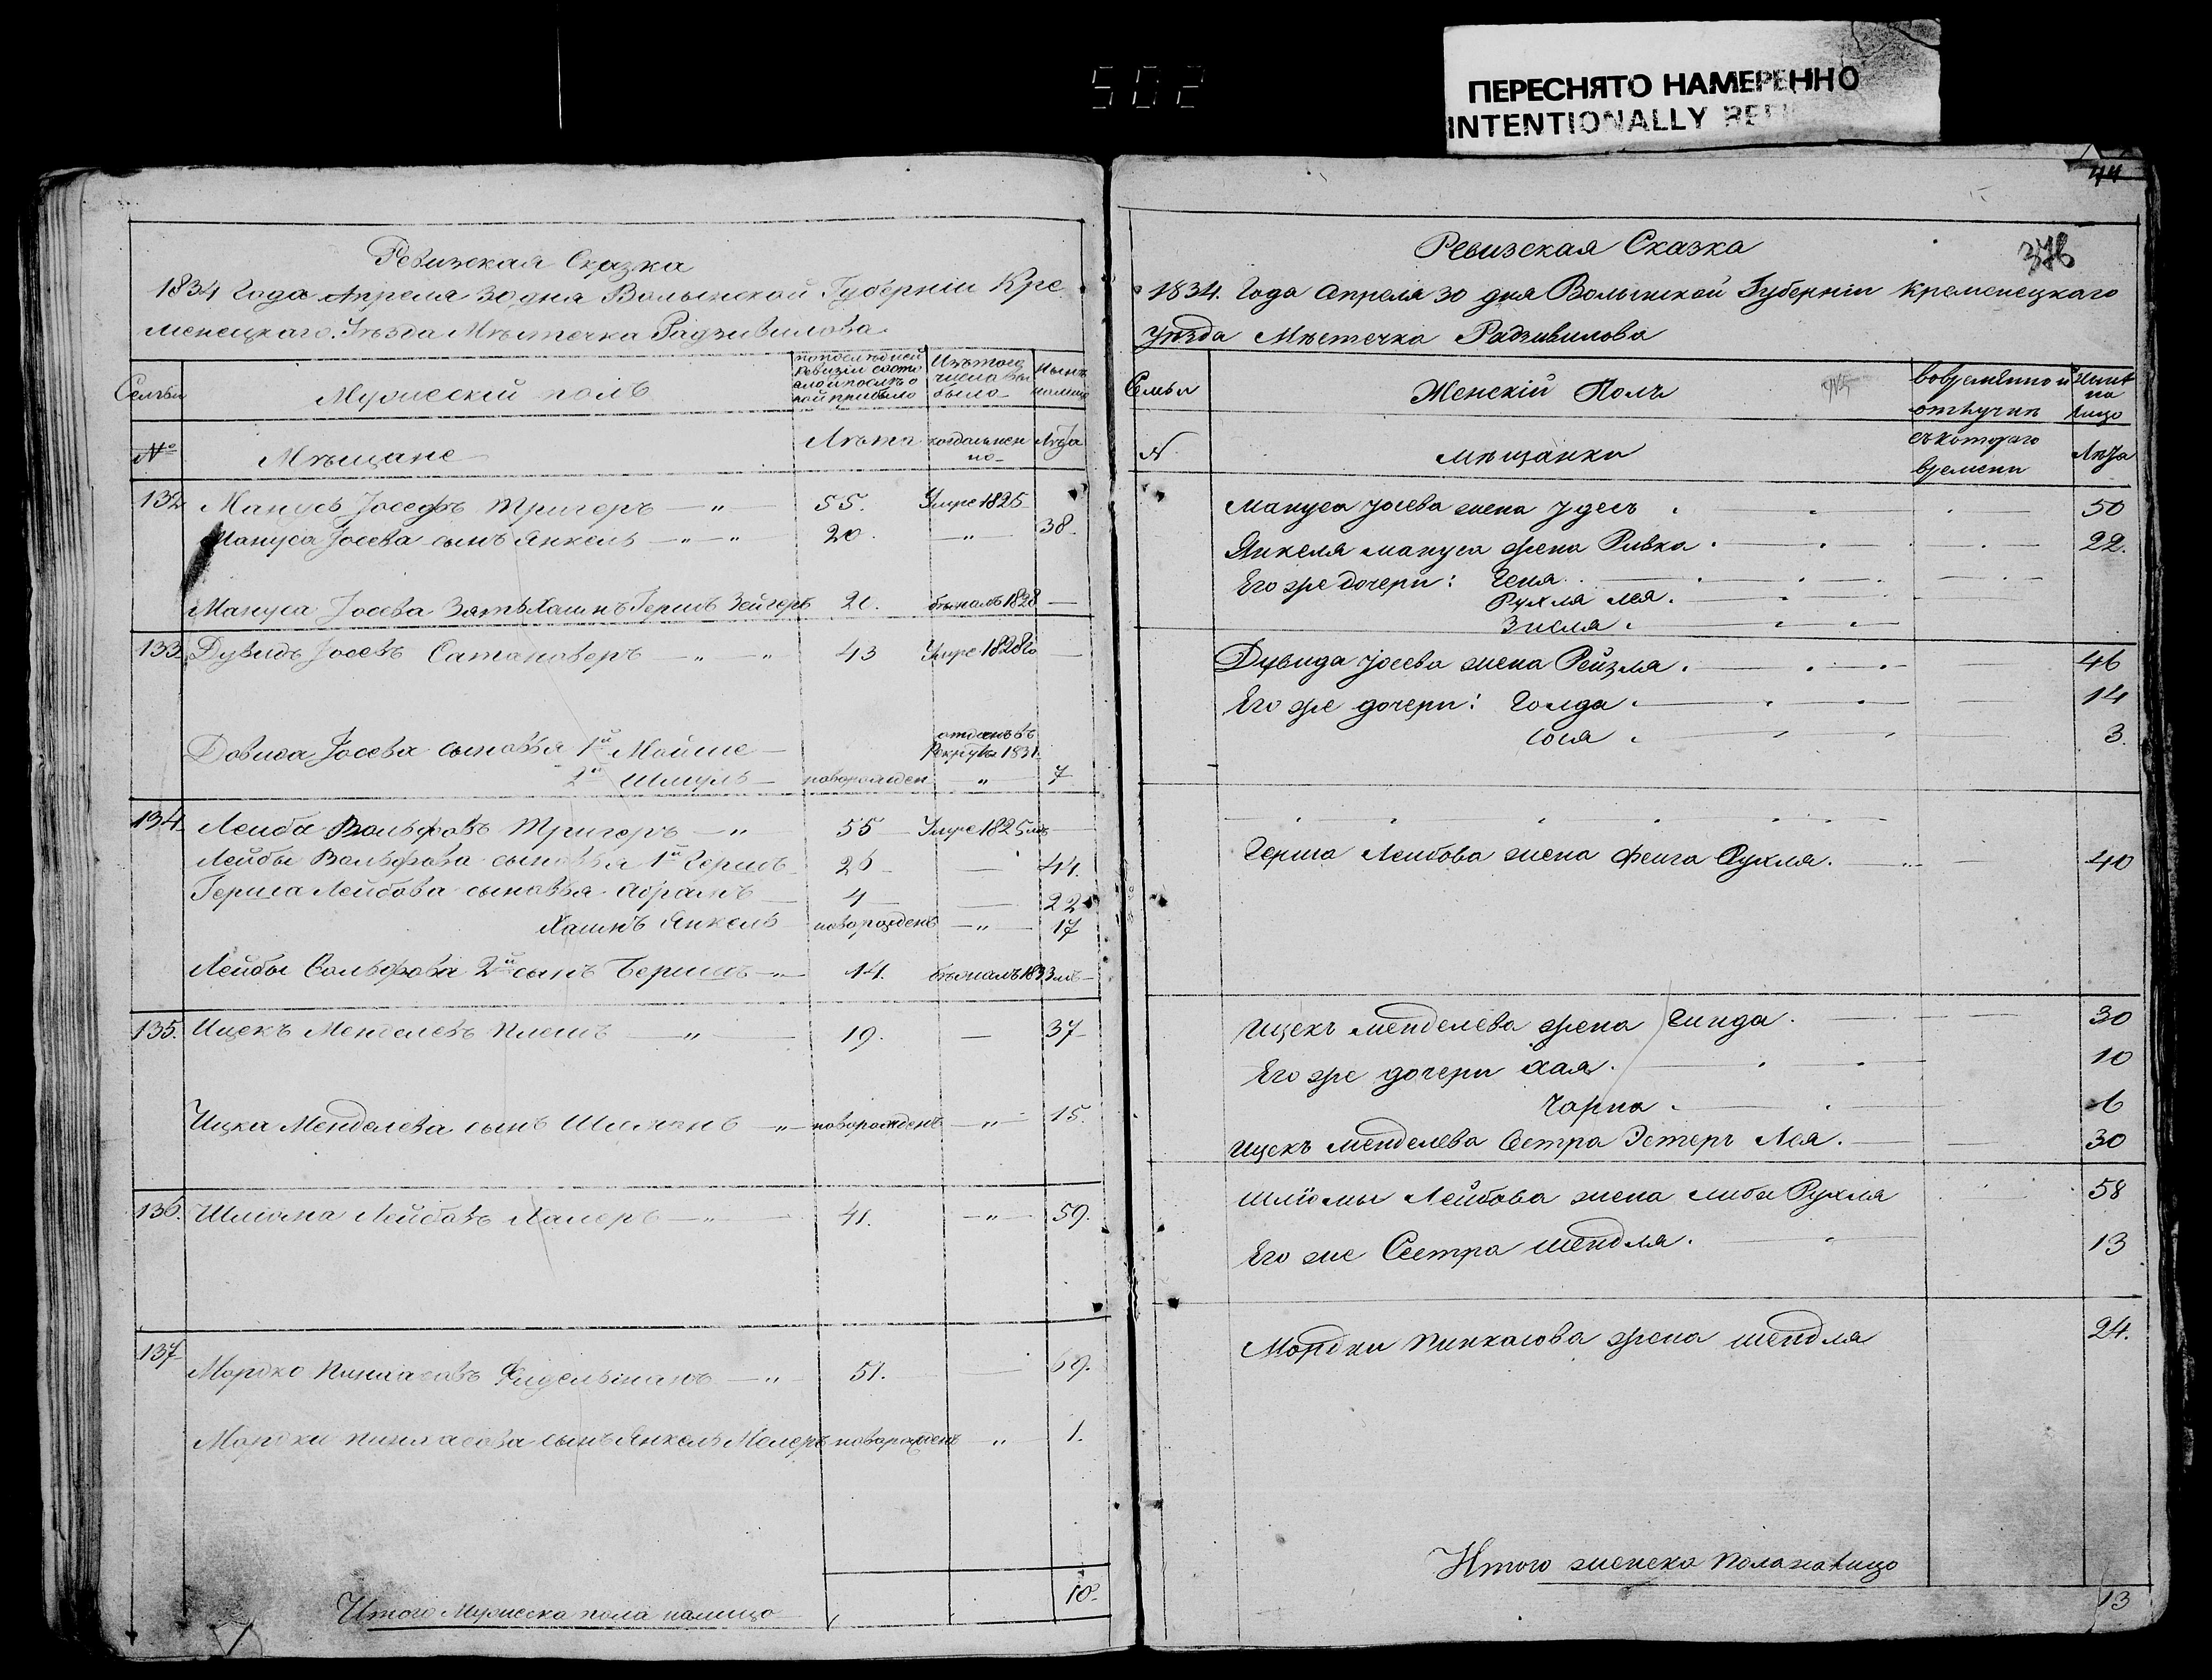 502
ПЕРЕСНЯТО НАМЕРЕННО
INTENTIONALLY
Ревизская Сказка
1834 Года Апреля 30 дня Волынской Губернiи Кре
менецкаго Уѣзда Мѣстечка Радзивилова
Семьи
Мужескiй полъ
по последней ревизiи состо
яло и послѣ о
ной прибыло
Изъ того
числа вы
было
Нынѣ
налицо
№
Мѣщане
Лѣта
когда имен
но
Лѣта
132 Манусь Іосефъ Тригеръ — " 55. Умре 1825
Мануса Іосева сынъ Янкель — " — " 20. — " — 38.
Мануса Іосева Зять Хаимъ Гершъ Зейгеръ 20. бѣжалъ 1828 —
133. Дувидъ Іосевъ Сатановеръ — " — " 43 Умре 1828го —
Довида Іосева сыновья 1й Мойше —
отданъ въ
Рекруты 1831.
2й Шмуль — новорожден — " — 7
134. Лейба Вольфовъ Тригеръ — " 55 — Умре 1825мъ
Лейбы Вольфова сыновья 1й Гершъ 26 — 44.
Герша Лейбова сыновья Абрамъ 4 — 22
Хаимъ Янкель новорожденъ — " — 17
Лейбы Вольфова 2й сынъ Бершъ — " 14. бѣжалъ 1833мъ —
135. Ицекъ Менделевъ — " 19. — 37
Ицка Менделева сынъ Шлiома — " — новорожденъ — " — 15.
136. Шлiома Лейбовъ — " 41. — " — 59.
137 Мордко Пинкасовъ — " 51. — 69.
Мордки Пинкасова сынъ Янкель новорожденъ — " 1.
Итого Мужеска пола налицо 10
44
376
Ревизская Сказка
1834. Года Апреля 30 дня Волынской Губернiи Кременецкаго
Уѣзда Мѣстечка Радзивилова
Семьи
Женскiй Полъ
во временной
отлучкѣ
Нынѣ
на
лицо
N
Мѣщанки
съ котораго
времени
Лѣта
Мануса Іосева жена Удесъ 50
Янкеля Мануса жена Ривка 22.
Его же дочери: Геня
Рухля Лея
Зисля
Дувида Іосева жена Рейзля 46
Его же дочери: Голда 14
Сося 3.
Герша Лейбова жена Фейга Рухля 40
Ицекъ Менделева жена Гинда 30
Его же дочери Хая 10
Чарна 6
Ицекъ Менделева Сестра Эстеръ Лея 30
Шлiомы Лейбова жена Либа Рухля 58
Его же Сестра Шендля 13
Мордки Пинкасова жена Шендля 24.
Итого женска пола налицо
13